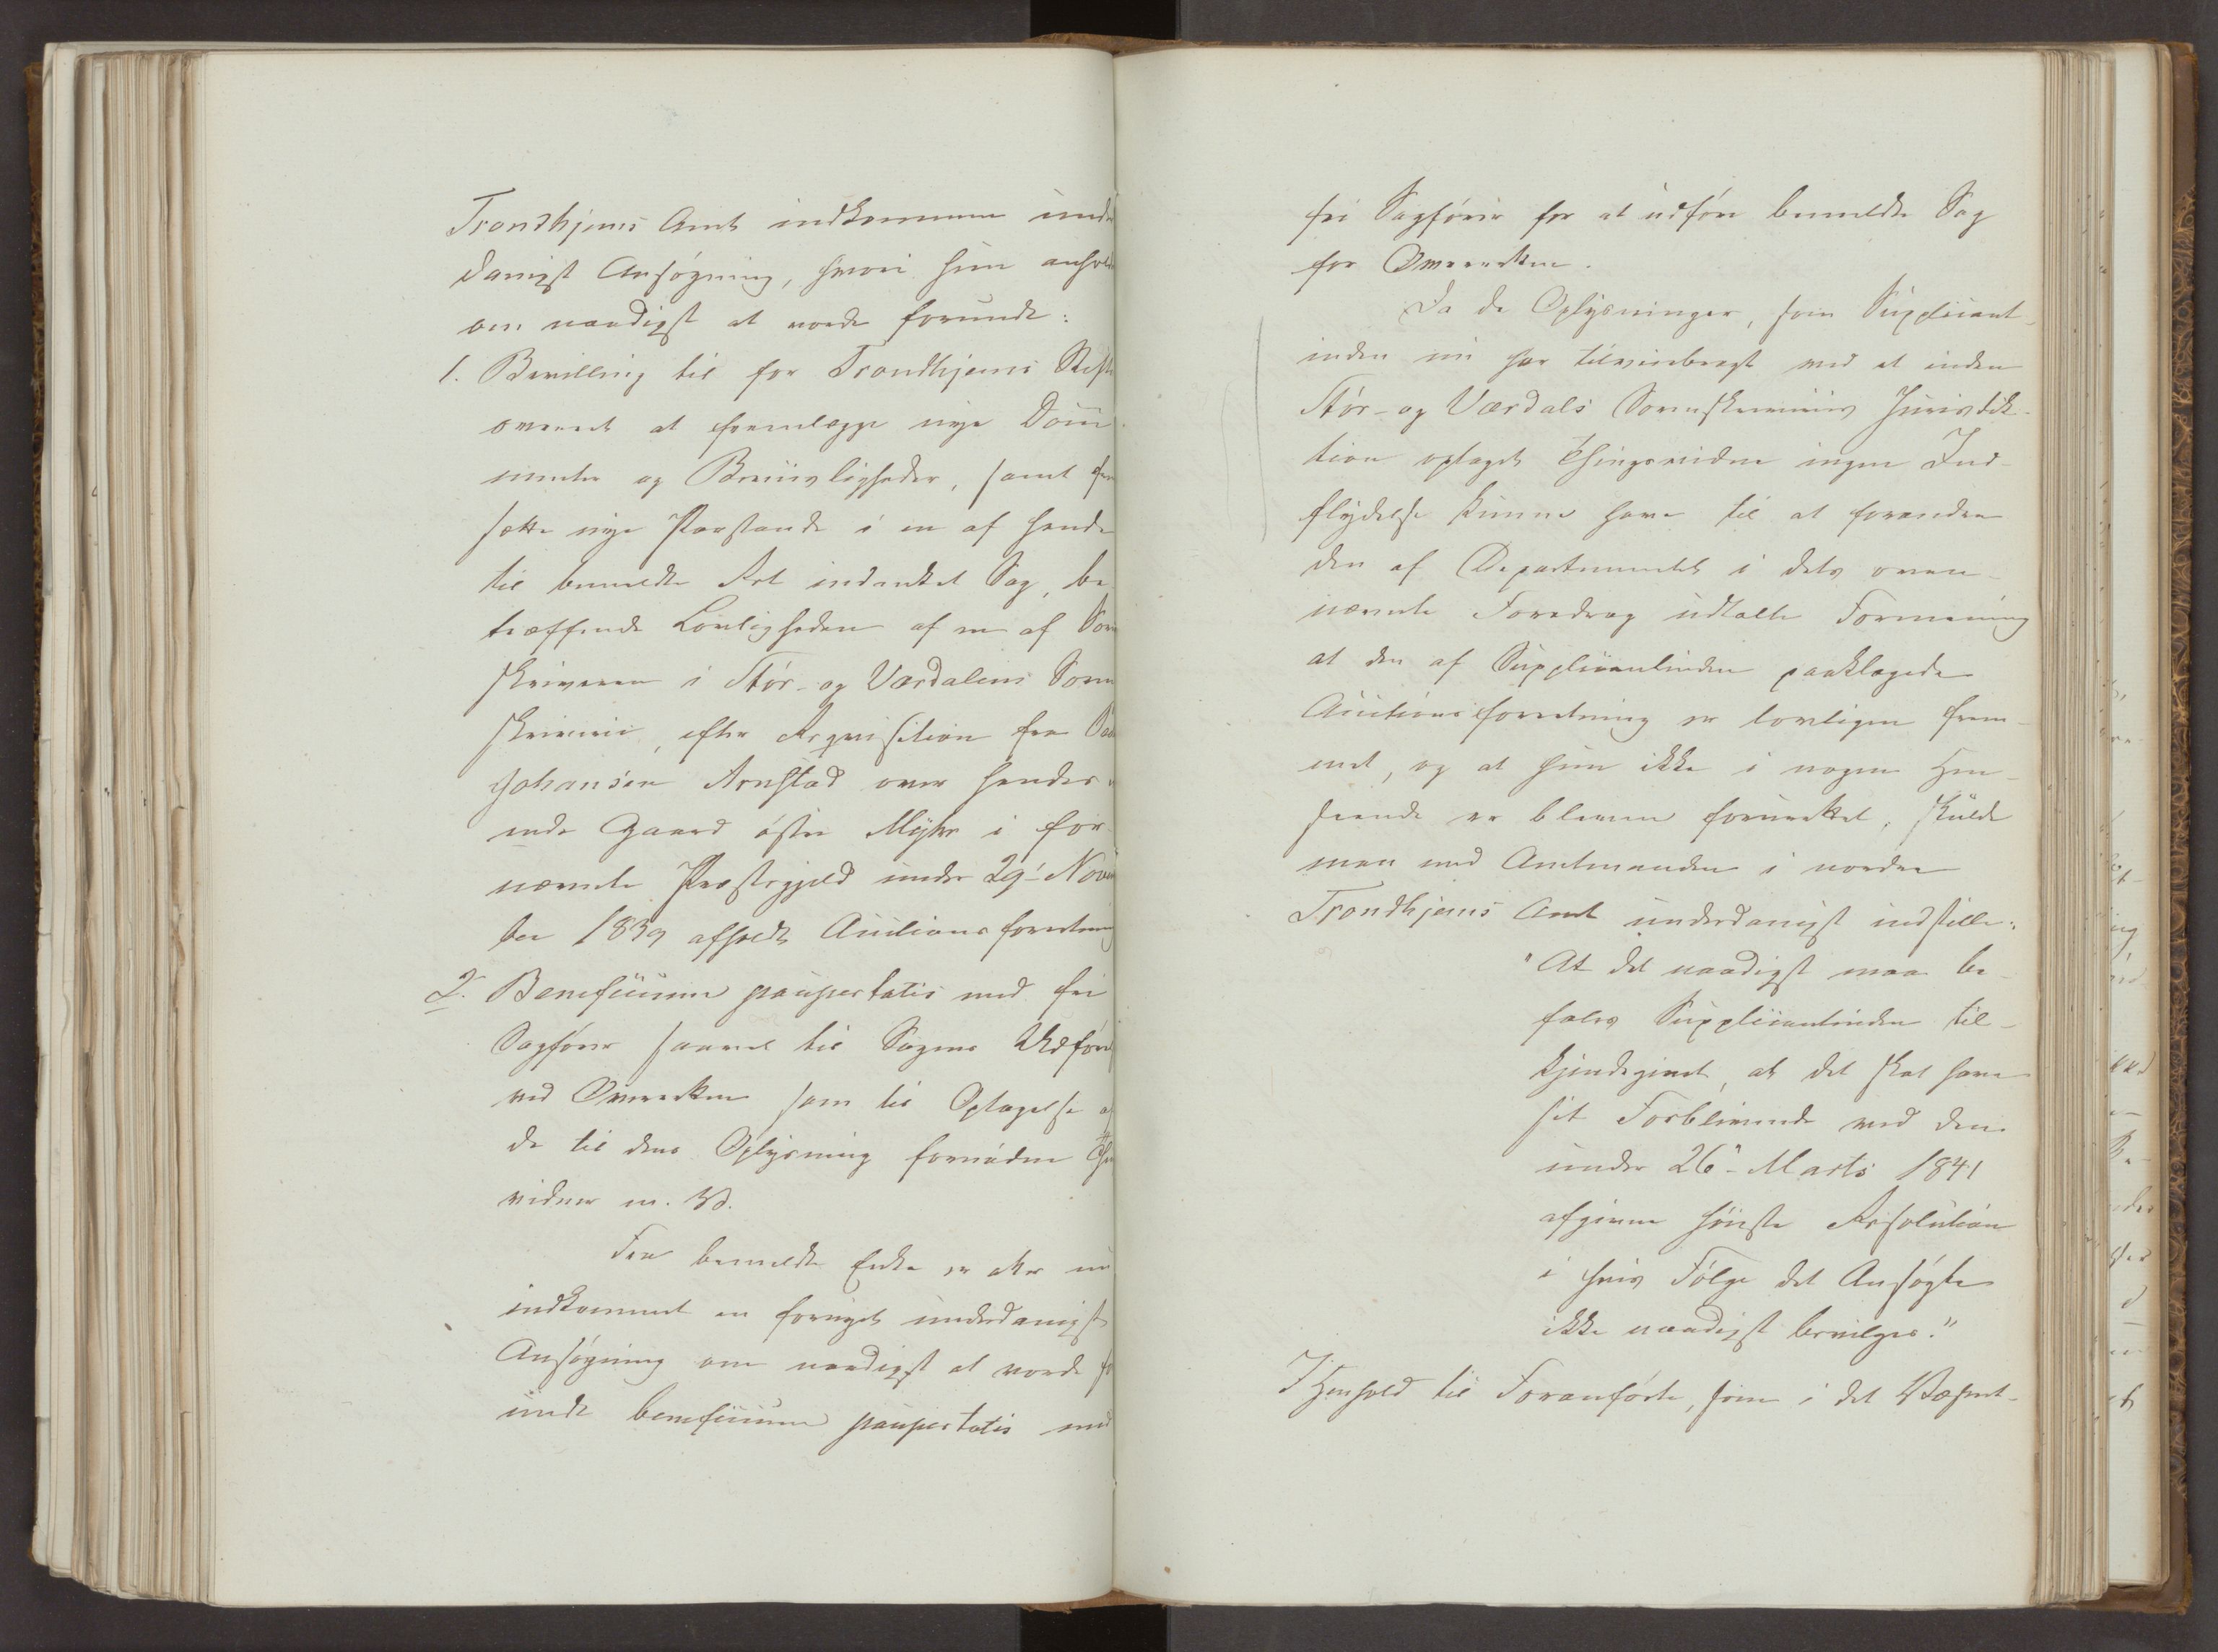 Trondhjems Amt indkommen under
danigst Ansøgning, hvori hun anhold
om naadigst at vorde forundt:
1. Bevilling til for Trondhjems Stifts
overret at fremlægge nye Docu
menter og Beviisligheder, samt frem
sætte nye Paastande i en af hende
til bemeldte Ret indanket Sag, be
træffende Lovligheden af en af Soren
skriveren i Stør- og Værdalens Soren
skriverie, efter Reqvisition fra
Johansen Arnstad over hendes
ende Gaard østre Myhr i for
nævnte Præstegjeld under 29' Novem
ber 1839 afholdt Auctionsforretning
2. Beneficium paupertatis med fri
Sagfører saavel til Sagens Udførel
ved Overretten som til Optagelse af
de til dens Oplysning fornødne Thi
vidner m. V.
Fra bemeldte Enke er atter nu
indkommet en fornyet underdanigst
Ansøgning om naadigst at vorde fo
undt beneficium paupertatis med
fri Sagfører for at udføre bemeldte Sag
for Overretten.
Da de Oplysninger, som Supplicant-
inden nu har tilveiebragt ved et inden
Stør- og Værdals Sorenskriveries Jurisdik-
tion optaget Thingsvidne ingen Ind-
flydelse kunne have til at forandre
den af Departementet i dets oven-
nævnte Foredrag udtalte Formening
at den af Supplicantinden paaklagede
Auctionsforretning er lovligen frem-
met, og at hun ikke i nogen Hen-
seende er bleven forurettet, skulde
man med Amtmanden i nordre
Trondhjems Amt underdanigst indstille:
"At det naadigst maa be-
fales Supplicantinden til-
kjendegivet, at det skal have
sit Forblivende ved den
under 26" Marts 1841
afgivne høieste Resolution
i hvis Følge det Ansøgte
ikke naadigst bevilges."
I Henhold til Foranførte, som i det Væsent-